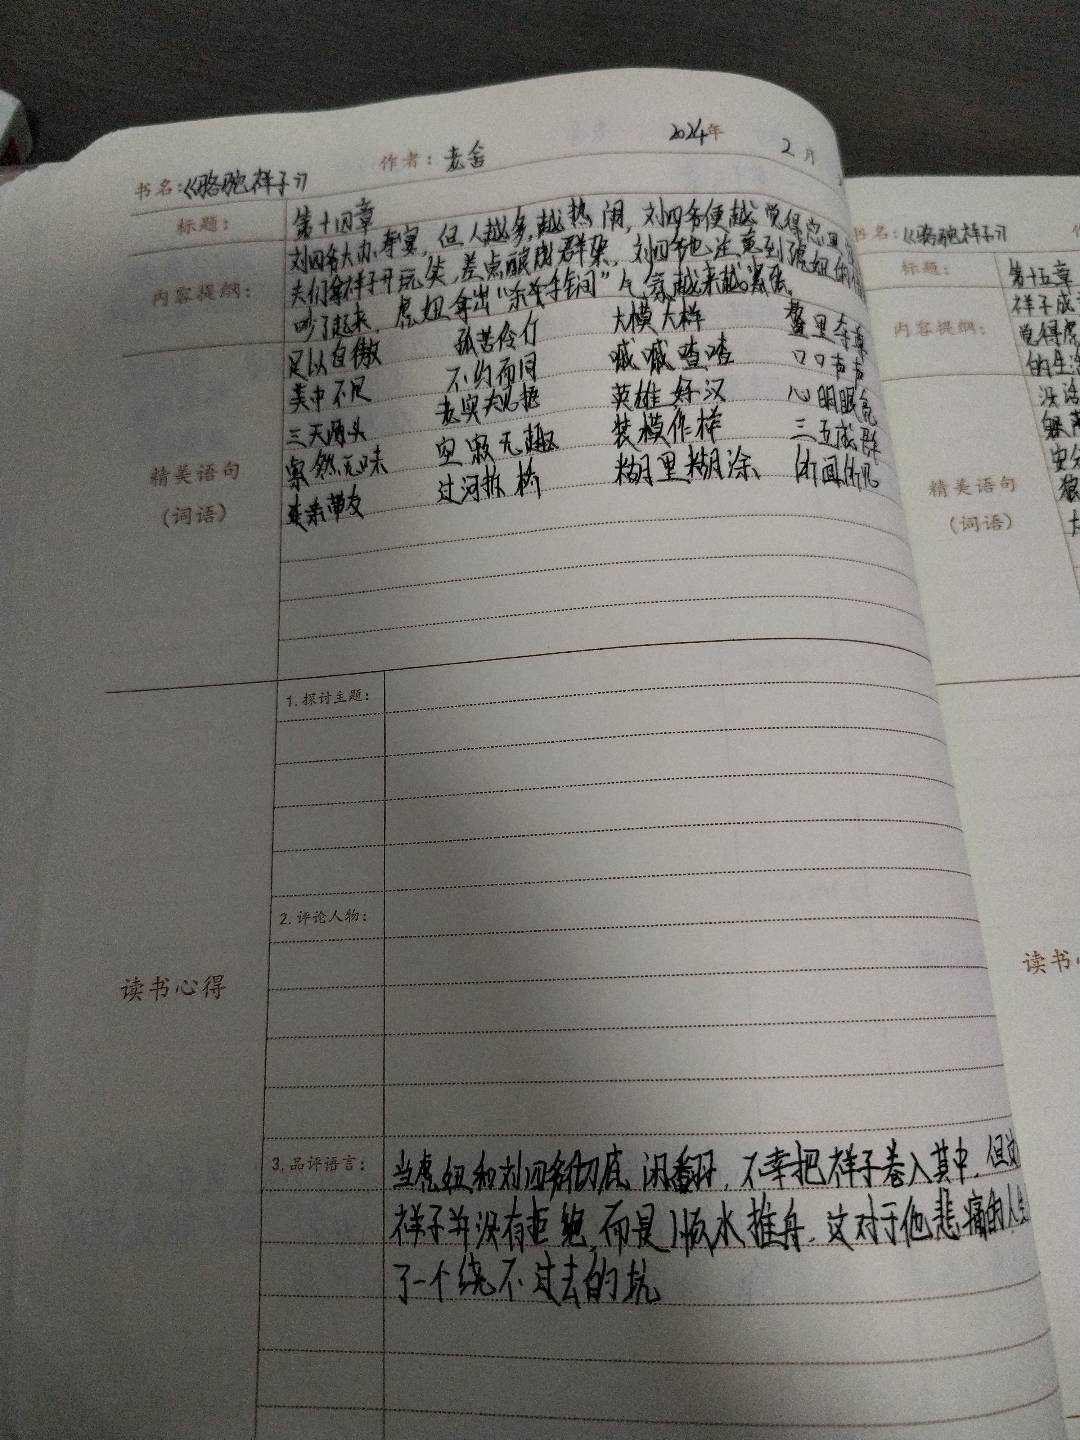 2024年 2月
书名:《骆驼祥子》 作者:老舍
标题: 第十四章
内容提纲: 刘四爷大办寿宴,但人越多,越热闹,刘四爷便越觉得
夫们拿祥子开玩笑,差点酿成群架,刘四爷也注意到虎妞的
吵了起来,虎妞拿出“杀手锏”气氛越来越紧张。
精美语句
(词语)
足以自傲 孤苦伶仃 大模大样
美中不足 不约而同 嘁嘁喳喳 口口声声
三天两头 老实规矩 英雄好汉 心明眼亮
索然无味 空寂无趣 装模作样 三五成群
连亲带友 过河拆桥 糊里糊涂
读书心得
1.探讨主题:
2.评论人物:
3.品评语言: 当虎妞和刘四爷彻底闹翻,不幸把祥子卷入其中,但
祥子并没有拒绝,而是顺水推舟,这对于他悲痛的人
了一个绕不过去的坑
书名:《骆驼祥子》
标题: 第十五章
内容提纲: 祥子成
觉得虎
的生活
精美语句
(词语)
没
安分
大
读书